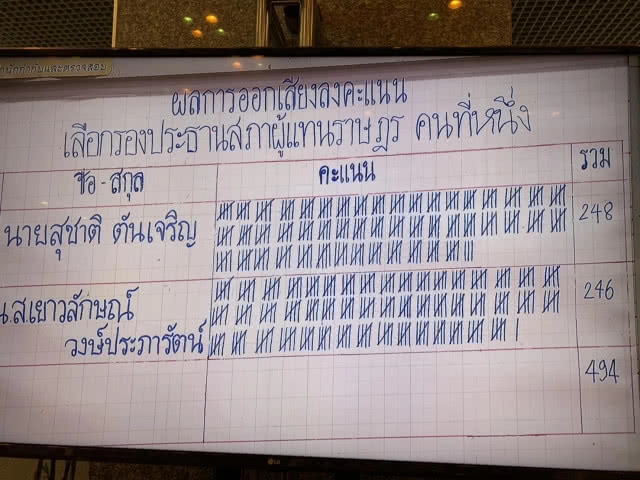 กำกับและตรวจสอบ
ผลการออกเสียงลงคะแนน
เลือกรองประธานสภาผู้แทนราษฎร คนที่หนึ่ง
ชื่อ - สกุล คะแนน รวม
นายสุชาติ ตันเจริญ 248
น.ส.เยาวลักษณ์
วงษ์ประภารัตน์ 246
494
LG